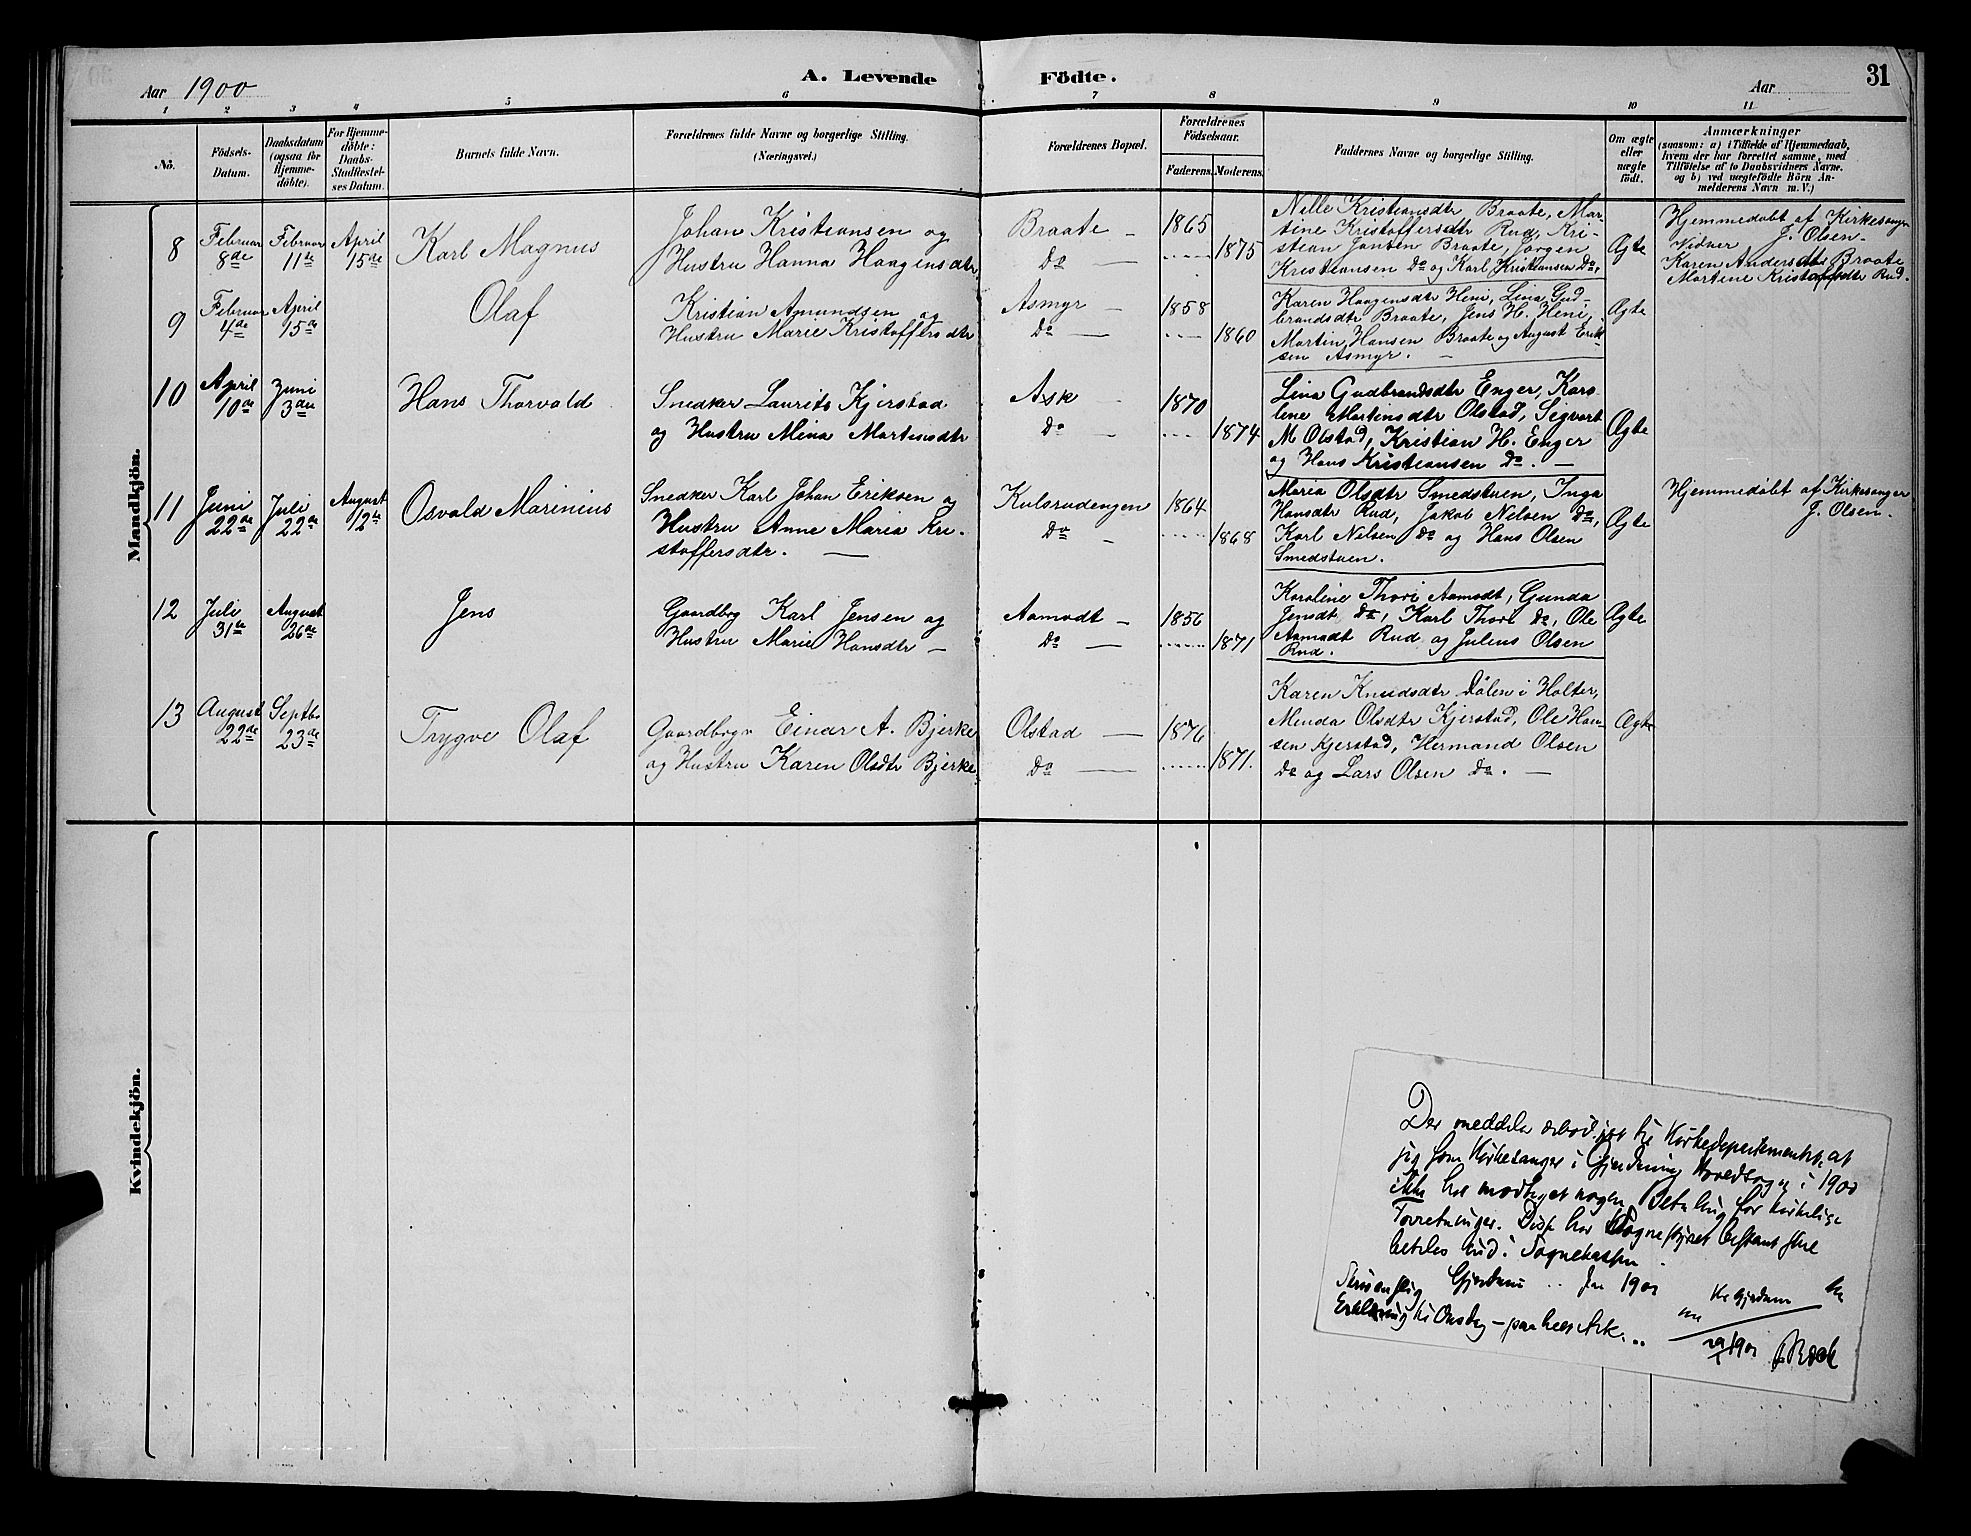 Aar 1900
A. Levende Födte.
Aar
31
1 2 3 4 5 6 7 8 9 10 11
No.
Födsels-
Datum.
Daabsdatum
(ogsaa for
Hjemme-
döbte).
For Hjemme-
döbte:
Daabs-
Stadfæstel-
ses Datum.
Barnets fulde Navn.
Forældrenes fulde Navne og borgerlige Stilling.
(Næringsvei.)
Forældrenes Bopæl.
Forældrenes
Födselsaar.
Faderens.
Moderens.
Faddernes Navne og borgerlige Stilling.
Om ægte
eller
uægte
födt.
Anmærkninger
(saasom: a) i Tilfælde af Hjemmedaab,
hvem der har forrettet samme, med
Tilföielse af to Daabsvidners Navne,
og b) ved uægtefödte Börn An-
melderens Navn m. V.)
Mandkjön.
8
Februar
8de
Februar
11te
April
15de
Karl Magnus
Johan Kristiansen og
Hustru Hanna Haagensdtr
Braate —
Do —
1865
1875
Nille Kristiansdtr Braate, Mar-
tine Kristoffersdtr Rud, Kri-
stian Jansen Braate, Jörgen
Kristiansen Do og Karl Kristiansen Do,
Ægte
Hjemmedöbt af Kirkesanger
Vidner J. Olsen —
Karen Andersdtr Braate
Martine Kristoffersdtr Rud.
9
Februar
4de
April
15de
Olaf
Kristian Amundsen og
Hustru Marie Kristoffersdtr
Asmyr —
Do —
1858
1860
Karen Haagensdtr Heni, Lina Gud-
brandsdtr Braate, Jens H. Heni,
Martin Hansen Braate og August Erik-
sen Asmyr. —
Ægte
10
April
10de
Juni
3die
Hans Thorvald
Snedker Laurits Kjerstad
og Hustru Mina Martinsdtr
Ask —
Do —
1870
1874
Lina Gudbrandsdtr Enger, Karo-
line Martinsdtr Olstad, Segvart
M Olstad, Kristian H. Enger
og Hans Kristiansen Do. —
Ægte
11
Juni
22de
Juli
22de
August
12te
Osvald Marinius
Snedker Karl Johan Eriksen og
Hustru Anne Maria Kri-
stoffersdtr. —
Kulsrudengen
Do —
1864
1868
Maria Olsdtr Smedstuen, Inga
Hansdtr Rud, Jakob Nilsen Do,
Karl Nilsen Do og Hans Olsen
Smedstuen.
Ægte
Hjemmedöbt af Kirkesanger
J. Olsen —
12
Juli
31te
August
26de
Jens
Gaardbrg Karl Jensen og
Hustru Marie Hansdtr —
Aamodt —
Do —
1856
1871
Karoline Thori Aamodt, Gunda
Jensdt Do, Karl Thori Do, Ole
Aamodt Rud og Julius Olsen
Rud.
Ægte
13
August
22de
Septbr
23de
Trygve Olaf
Gaardbrgr Einar A. Bjerke
og Hustru Karen Olsdtr Bjerke
Olstad —
Do —
1876
1871.
Karen Knudsdtr Dölen i Holter,
Menda Olsdtr Kjerstad, Ole Han-
sen Kjerstad, Hermand Olsen
Do og Lars Olsen Do. —
Ægte
Kvindekjön.
Der meddeles til Kirkedepartementet, at
jeg som Kirkesanger i Gjerdrum Hovedsogn i 1900
ikke har modtaget nogen Betaling for kirkelige
Forretninger. Disse har Sognestyret bestemt skal
betales ind i Sognekassen
Gjerdrum .. Jan 1901
Erklæring
Gjerdrum
1901